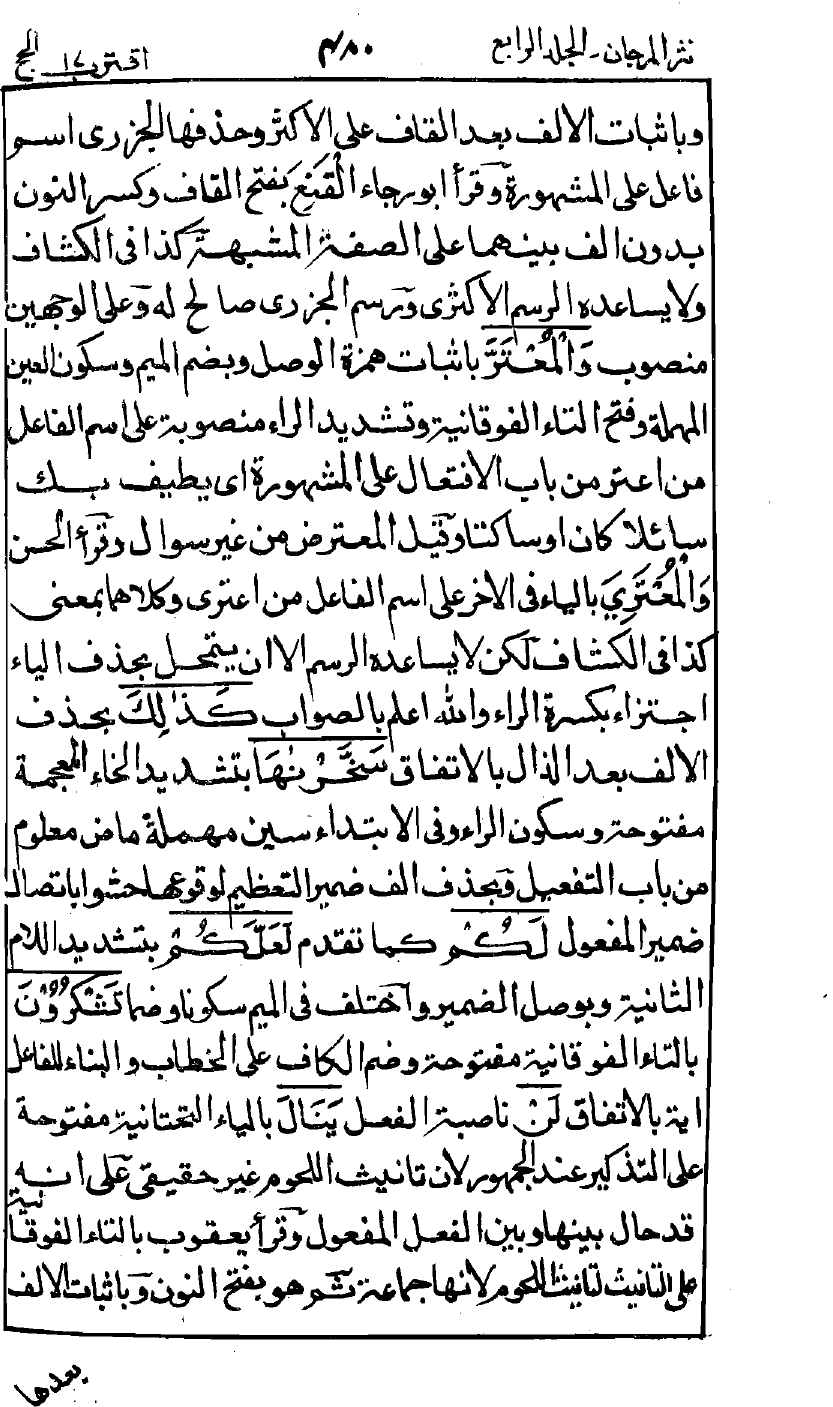 نثر المرجان۔ الجلد الرابع
۴۸۰
اقترب ١٧ الحج
وباثبات الالف بعد القاف على الاكثر وحذفها الجزرى اسم
فاعل على المشهورة وقرأ ابو رجاء الْقَنِعَ بفتح القاف وكسر النون
بدون الف بينهما على الصفة المشبهة كذا فى الكشاف
ولا يساعده الرسم الاكثرى ورسم الجزرى صالح له وعلى الوجهين
منصوب وَالْمُعْتَرَّ باثبات همزة الوصل وبضم الميم وسكون العين
المهملة وفتح التاء الفوقانية وتشديد الراء منصوبة على اسم الفاعل
من اعتر من باب الافتعال على المشهورة اى يطيف بك
سائلا كان او ساكتا وقيل المعترض من غير سوال وقرأ الحسن
وَالْمُعْتَرِيَ بالياء فى الاخر على اسم الفاعل من اعترى وكلاهما بمعنى
كذا فى الكشاف لكن لا يساعده الرسم الا ان يتمحل بحذف الياء
اجتزاء بكسرة الراء والله اعلم بالصواب كَذٰلِكَ بحذف
الالف بعد الذال بالاتفاق سَخَّرْنٰهَا بتشديد الخاء المعجمة
مفتوحة وسكون الراء وفى الابتداء سين مهملة ماض معلوم
من باب التفعيل وبحذف الف ضمير التعظيم لوقوعها حشوا باتصال
ضمير المفعول لَكُمْ كما تقدم لَعَلَّكُمْ بتشديد اللام
الثانية وبوصل الضمير واختلف فى الميم سكونا وضما تَشْكُرُوْنَ
بالتاء الفوقانية مفتوحة وضم الكاف على الخطاب والبناء للفاعل
اية بالاتفاق لَنْ ناصبة الفعل يَنَالَ بالياء التحتانية مفتوحة
على التذكير عند الجمهور لان تانيث اللحوم غير حقيقى على انه
قد حال بينها وبين الفعل المفعول وقرأ يعقوب بالتاء الفوقانية
على التانيث لتانيث اللحوم لانها جماعة ثم هو بفتح النون وباثبات الالف
بعدها